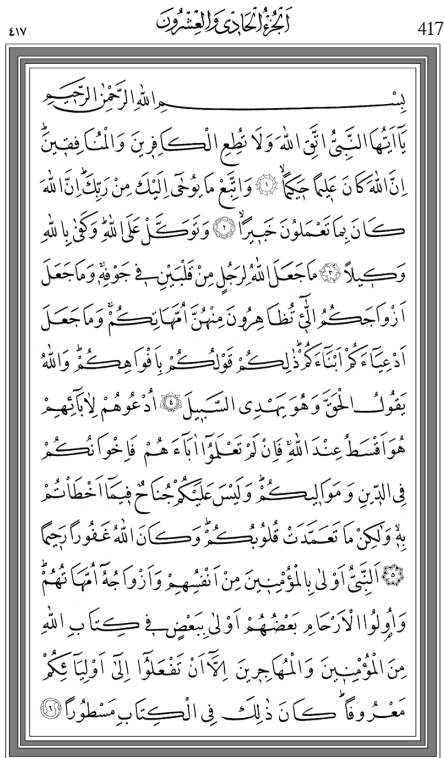 ٤١٧ اَلْجُزْءُ الْحَادٖى وَالْعِشْرُونَ 417
بِسْمِ اللهِ الرَّحْمٰنِ الرَّحٖيمِ
يَٓا اَيُّهَا النَّبِىُّ اتَّقِ اللهَ وَلَا تُطِعِ الْكَافِرٖينَ وَالْمُنَافِقٖينَۜ
اِنَّ اللهَ كَانَ عَلٖيمًا حَكٖيمًاۙ ﴿١﴾ وَاتَّبِعْ مَا يُوحٰٓى اِلَيْكَ مِنْ رَبِّكَۜ اِنَّ اللهَ
كَانَ بِمَا تَعْمَلُونَ خَبٖيرًاۙ ﴿٢﴾ وَتَوَكَّلْ عَلَى اللهِۜ وَكَفٰى بِاللهِ
وَكٖيلًا ﴿٣﴾ مَا جَعَلَ اللهُ لِرَجُلٍ مِنْ قَلْبَيْنِ فٖى جَوْفِهٖۚ وَمَا جَعَلَ
اَزْوَاجَكُمُ الّٰٓئٖ تُظَاهِرُونَ مِنْهُنَّ اُمَّهَاتِكُمْۚ وَمَا جَعَلَ
اَدْعِيَٓاءَكُمْ اَبْنَٓاءَكُمْۜ ذٰلِكُمْ قَوْلُكُمْ بِاَفْوَاهِكُمْۜ وَاللهُ
يَقُولُ الْحَقَّ وَهُوَ يَهْدِى السَّبٖيلَ ﴿٤﴾ اُدْعُوهُمْ لِاٰبَٓائِهِمْ
هُوَ اَقْسَطُ عِنْدَ اللهِۚ فَاِنْ لَمْ تَعْلَمُٓوا اٰبَٓاءَهُمْ فَاِخْوَانُكُمْ
فِى الدّٖينِ وَمَوَالٖيكُمْۜ وَلَيْسَ عَلَيْكُمْ جُنَاحٌ فٖيمَٓا اَخْطَاْتُمْ
بِهٖۙ وَلٰكِنْ مَا تَعَمَّدَتْ قُلُوبُكُمْۜ وَكَانَ اللهُ غَفُورًا رَحٖيمًا
﴿٥﴾ اَلنَّبِىُّ اَوْلٰى بِالْمُؤْمِنٖينَ مِنْ اَنْفُسِهِمْ وَاَزْوَاجُهُٓ اُمَّهَاتُهُمْۜ
وَاُولُوا الْاَرْحَامِ بَعْضُهُمْ اَوْلٰى بِبَعْضٍ فٖى كِتَابِ اللهِ
مِنَ الْمُؤْمِنٖينَ وَالْمُهَاجِرٖينَ اِلَّٓا اَنْ تَفْعَلُٓوا اِلٰٓى اَوْلِيَٓائِكُمْ
مَعْرُوفًاۜ كَانَ ذٰلِكَ فِى الْكِتَابِ مَسْطُورًا ﴿٦﴾